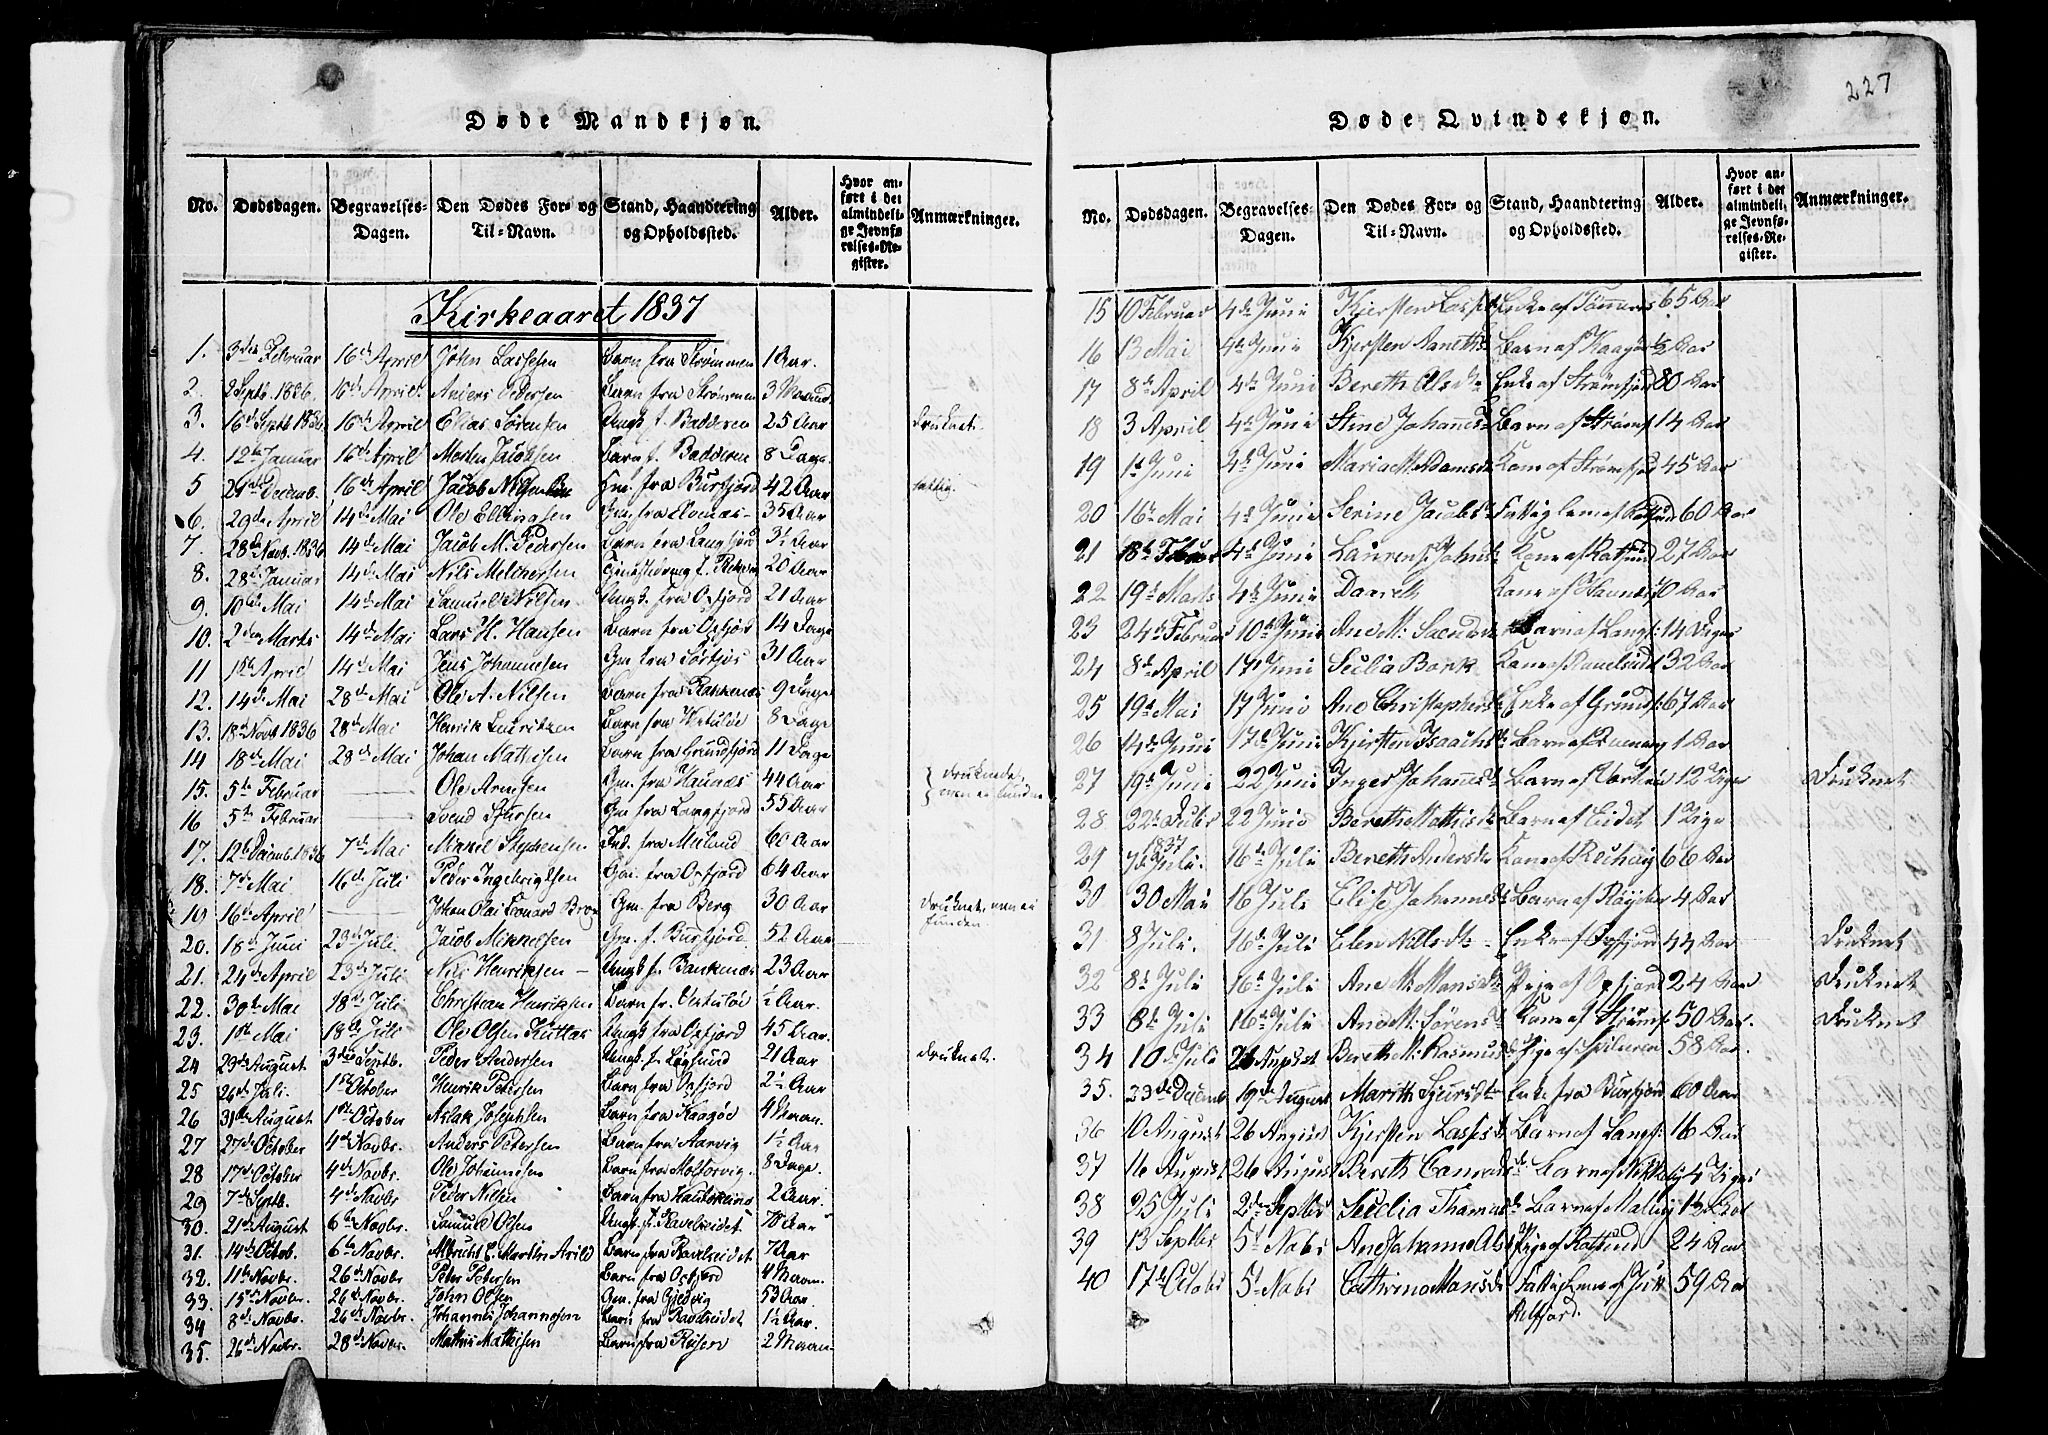 227
Døde Mandkjøn.
No. Dødsdagen. Begravelses-Dagen. Den Dødes For- og Til-Navn. Stand, Haandtering og Opholdssted. Alder. Hvor anført i det almindelige Jevnførelses-Register. Anmærkninger.
Kirkeaaret 1837
1. 3den Februar 16de April John Larssen Barn fra Strømmen 1 Aar.
2. 2 Septb. 1836. 16de April. Anders Pedersen Barn fra Strømmen 3 Maaned.
3. 16de Septb 1836 16de April Elias Sørensen Ungk. f. Badderen 25 Aar Druknet.
4. 12te Januar 16de April Morten Jacobsen Barn f. Badderen 8 Dage.
5 Decemb. 16de April Jacob Nilsen Gm. fra Burfjord 42 Aar fattig.
6. 29de April 14de Mai Ole Ellingsen Gm. fra 35 Aar
7. 28de Novb. 1836 14de Mai Jacob M. Pedersen Barn fra Langfjord 3½ Aar
8. 28de Januar 14de Mai Nils Melchersen 20 Aar
9. 10de Mai 14de Mai Samuel Nilsen Ungk. fra Oxfjord 21 Aar
10. 2den Marts 14de Mai Lars H. Hansen Barn fra Oxfjord 14 Dage
11 15de April 14de Mai Jens Johannesen Gm fra 31 Aar
12. 14de Mai 28de Mai Ole A. Nilsen Barn fra 9 Dage
13. 18de Novb 1836 28de Mai Henrik Lauritzen Barn fra 8 Dage
14 18de Mai 28de Mai Johan Mathisen Barn fra Grundfjord 11 Dage
15. 5te Februar — Ole Arnesen Gm. fra Haunæs 44 Aar } Druknede,
16 5te Februar — Svend Gm fra Langfjord 55 Aar } men ei fundne
17. 12te Decemb. 1836 7de Mai Mikkel Stephensen Ind. fra Meiland 60 Aar
18. 7de Mai 16de Juli Peder Ingebrigtsen Gm. fra Oxfjord 64 Aar
19 16de April — Johan Olai Leonard Gm. fra Berg 30 Aar Druknet, men ei funden
20. 18de Juni 23de Juli. Jacob Mikkelsen Gm. f. Burfjord. 52 Aar
21. 24de April 23de Juli Nils Henriksen — Ungk. f. 23 Aar
22. 30te Mai 18de Juli Christian Henriksen Barn fr. ½ Aar.
23. 1ste Mai 18de Juli Ole Olsen Ungk fra Oxfjord 45 Aar.
24 23de August 3die Septb. Peder Andersen Ungk. f. Løgsund 21 Aar Druknet.
25 26de Juli. 1ste October Henrik Petersen Barn fra Oxfjord 2½ Aar
26 31te August 1ste October Aslak Josephsen Barn fra Kaagøe 4 Maan.
27 27de October 4de Novbr. Anders Petersen Barn fra Aarvig 1½ Aar
28 17de October 4de Novbr. Ole Johannesen Barn fra 8 Dage.
29 7de Septb. 4de Novbr. Peder Nilsen Barn fra Kautokeino 2 Aar.
30. 21de August 6te Novbr. Samuel Olsen Ungk. f. Ravelseidet 70 Aar
31. 14de Octob. 6te Novbr. Albrecht C. Martin Arild Barn fra Ravelseidet 7 Aar
32. 11te Novbr. 26de Novbr Peter Petersen Barn fra Oxfjord 4 Maan.
33. 15de Novbr. 26de Novbr. John Olsen Gm. fra Gjedvig 53 Aar.
34 8de Novbr. 26de Novbr. Johannes Johannesen Barn fra Ravelseidet 1½ Aar.
35. 26de Novbr. 28de Novbr. Mathis Mathisen Barn fra 2 Maan.
Døde Qvindekjøn.
No. Dødsdagen. Begravelses-Dagen. Den Dødes For- og Til-Navn. Stand, Haandtering og Opholdssted. Alder. Hvor anført i det almindelige Jevnførelses-Register. Anmærkninger.
15 10 Februar 4de Juni Kjersten Enke af 65 Aar
16 13 Mai 4de Juni Kjersten Barn af Kaagøe ½ Aar
17 8de April 4de Juni Bereth Olsdr Enke af Strømfjord 80 Aar
18 3 April 4de Juni Stine Johannesdr Barn af Strømf 14 Aar
19 1ste Juni 4de Juni Maria M. Adamsdr Kone af Strømfjord 45 Aar
20 16de Mai 4de Juni Serine Jacobsdr Fattiglem af 60 Aar
21 18de Februar 4de Juni Johnsdr Kone af Rotsund 27 Aar
22 19de Marts 4de Juni Kone af Haunæs
23 24de Februar 10de Juni Ane M: Barn af Langf: 14 Dage
24 8de April 17de Juni Secilia Bork Kone af 32 Aar
25 19de Mai 17 Juni Ane Christophersdr Enke af Grundf: 67 Aar
26 14de Juni 17de Juni Kjersten Isaachsdr Barn af 1 Aar
27 19de Juni 22 Juni Inger Johannesdr Barn af 12 Druknet
28 22de 22 Juni Berethe Mathisdr Barn af Eidet 1
29 7de 1837 Juli. 16de Juli Bereth Andersdr Kone af 66 Aar
30 30 Mai 16 Juli Elise Johannesdr Barn af 4 Aar
31 8 Juli. 16de Juli Elen Nilsdr Enke af Oxfjord 44 Aar Druknet
32 8de Juli 16de Juli Ane M: Monsdr Pige af Oxfjord 24 Aar Druknet
33 8de Juli 16de Juli Ane M: Sørensdr Kone af Strømf. 50 Aar. Druknet
34 10 Juli August Berethe M: Rasmusdr Pige af Spilderen 58 Aar.
35. 23de Decemb 19de August Marith Sjursdr Enke fra Burfjord 60 Aar
36 10 August 26 August Kjersten Lassesdr Barn af Langf: 16 Aar
37 16 August 26 August Bereth Conradsdr Barn af 4 Dage
38 25 Juli 2de Septbr Secilia Thomasdr Barn af 1½ Aar
39 13 Septbr 5te Nobr Ane Johanne Olsdr Pige af Rotsund 24 Aar
40 17de Octobr 5te Nobr Cathrina Monsdr Fattiglem af 59 Aar